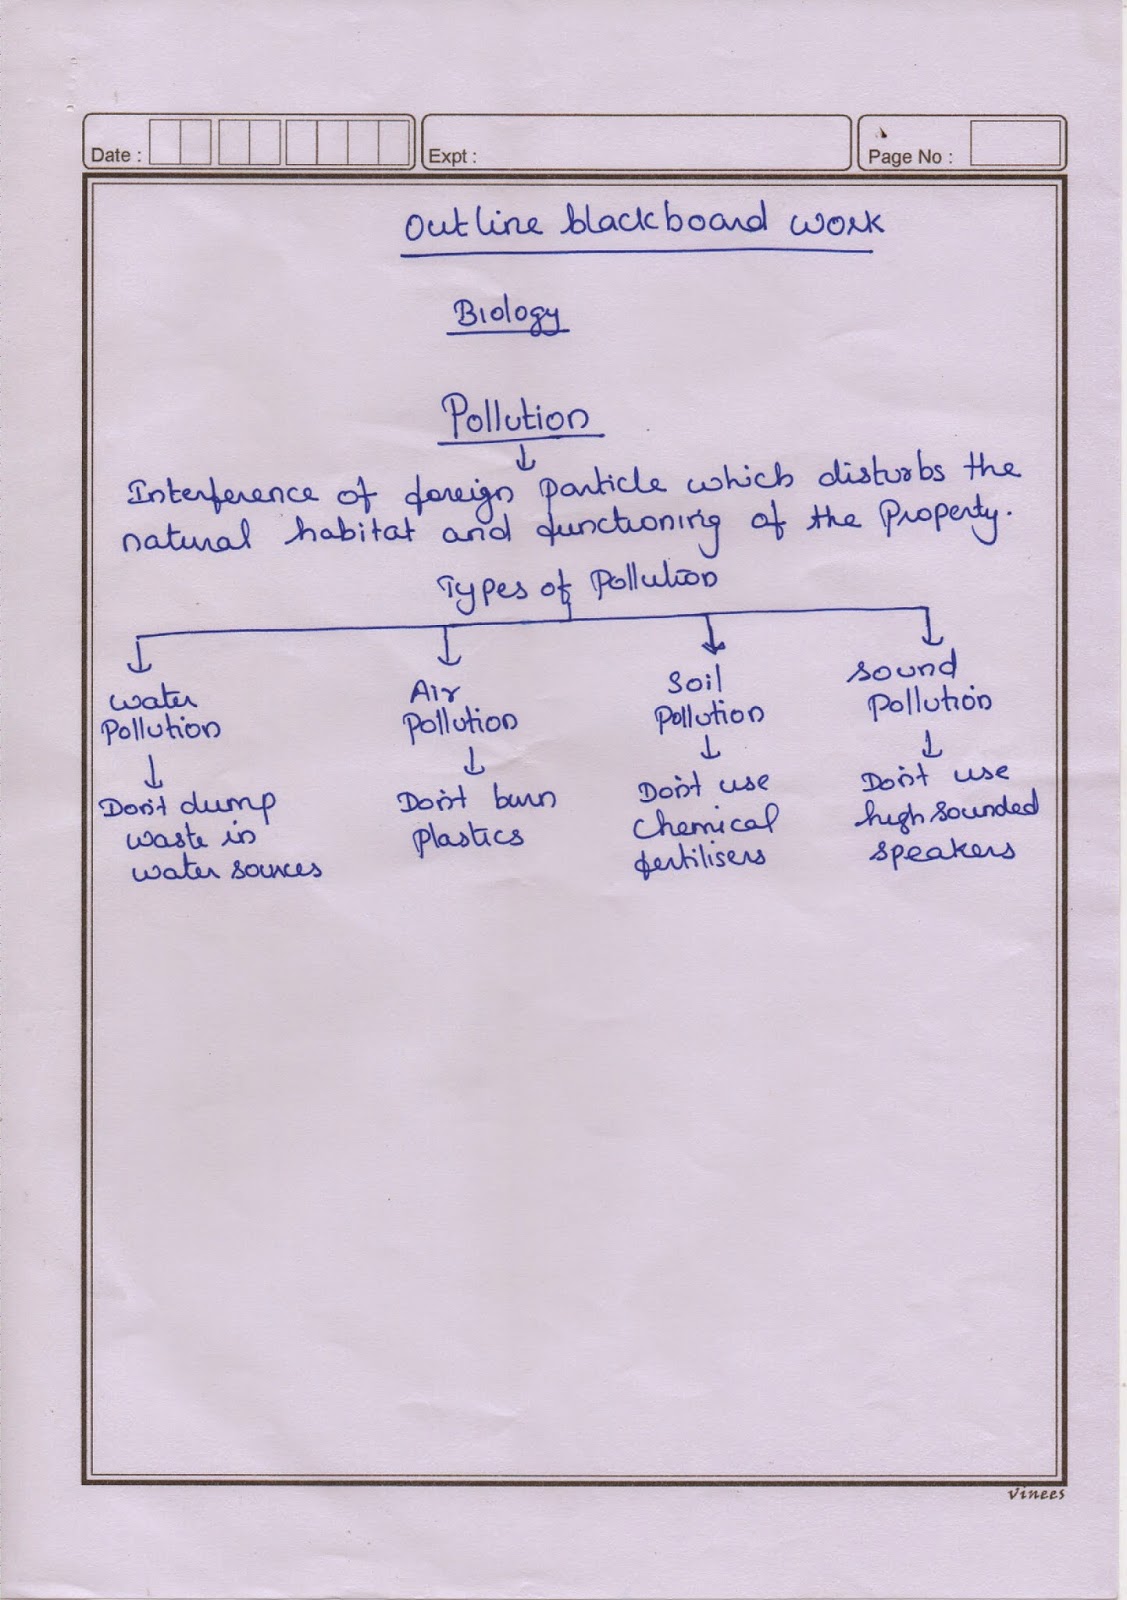 Date :
Expt :
Page No :
Outline blackboard work
Biology
Pollution
Interference of foreign particle which disturbs the
natural habitat and functioning of the Property.
Types of Pollution
Water
Pollution
Air
Pollution
Soil
Pollution
Sound
Pollution
Don't dump
waste in
water sources
Don't burn
plastics
Don't use
Chemical
fertilisers
Don't use
high sounded
speakers
Vinees